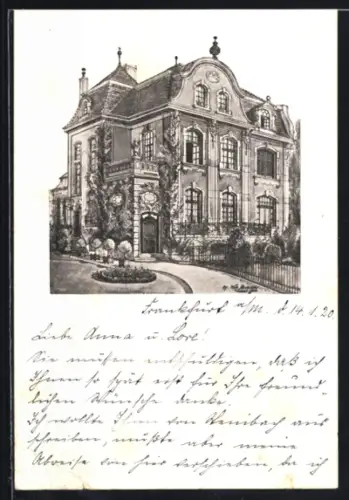 Frankfurt a/M. d. 14.1.20
Liebe Anna u. Lore!
Sie müssen entschuldigen, daß ich
Ihnen so spät erst für Ihre freund-
lichen Wünsche danke.
Ich wollte Ihnen von Weinbach aus
schreiben, mußte aber meine
Abreise von hier verschieben, da ich